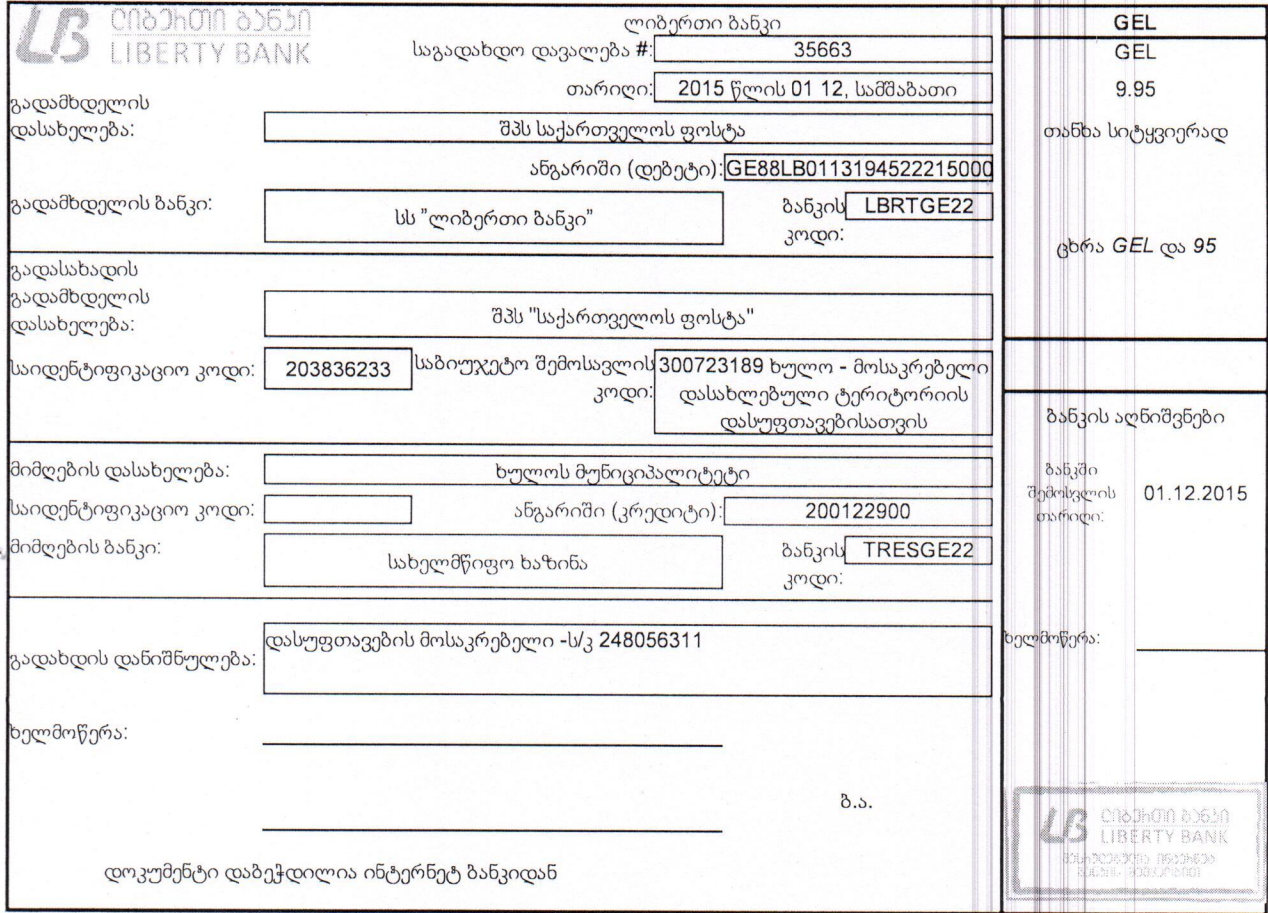 ლიბერთი ბანკი
LIBERTY BANK
ლიბერთი ბანკი
საგადახდო დავალება #: 35663
თარიღი: 2015 წლის 01 12, სამშაბათი
გადამხდელის
დასახელება: შპს საქართველოს ფოსტა
ანგარიში (დებეტი): GE88LB0113194522215000
გადამხდელის ბანკი: სს "ლიბერთი ბანკი" ბანკის კოდი: LBRTGE22
გადასახადის
გადამხდელის
დასახელება: შპს "საქართველოს ფოსტა"
საიდენტიფიკაციო კოდი: 203836233 საბიუჯეტო შემოსავლის კოდი: 300723189 ხულო - მოსაკრებელი
დასახლებული ტერიტორიის
დასუფთავებისათვის
მიმღების დასახელება: ხულოს მუნიციპალიტეტი
საიდენტიფიკაციო კოდი: ანგარიში (კრედიტი): 200122900
მიმღების ბანკი: სახელმწიფო ხაზინა ბანკის კოდი: TRESGE22
გადახდის დანიშნულება: დასუფთავების მოსაკრებელი -ს/კ 248056311
ხელმოწერა:
ბ.ა.
დოკუმენტი დაბეჭდილია ინტერნეტ ბანკიდან
GEL
GEL
9.95
თანხა სიტყვიერად
ცხრა GEL და 95
ბანკის აღნიშვნები
ბანკში
შემოსვლის
თარიღი: 01.12.2015
ხელმოწერა:
ლიბერთი ბანკი
LIBERTY BANK